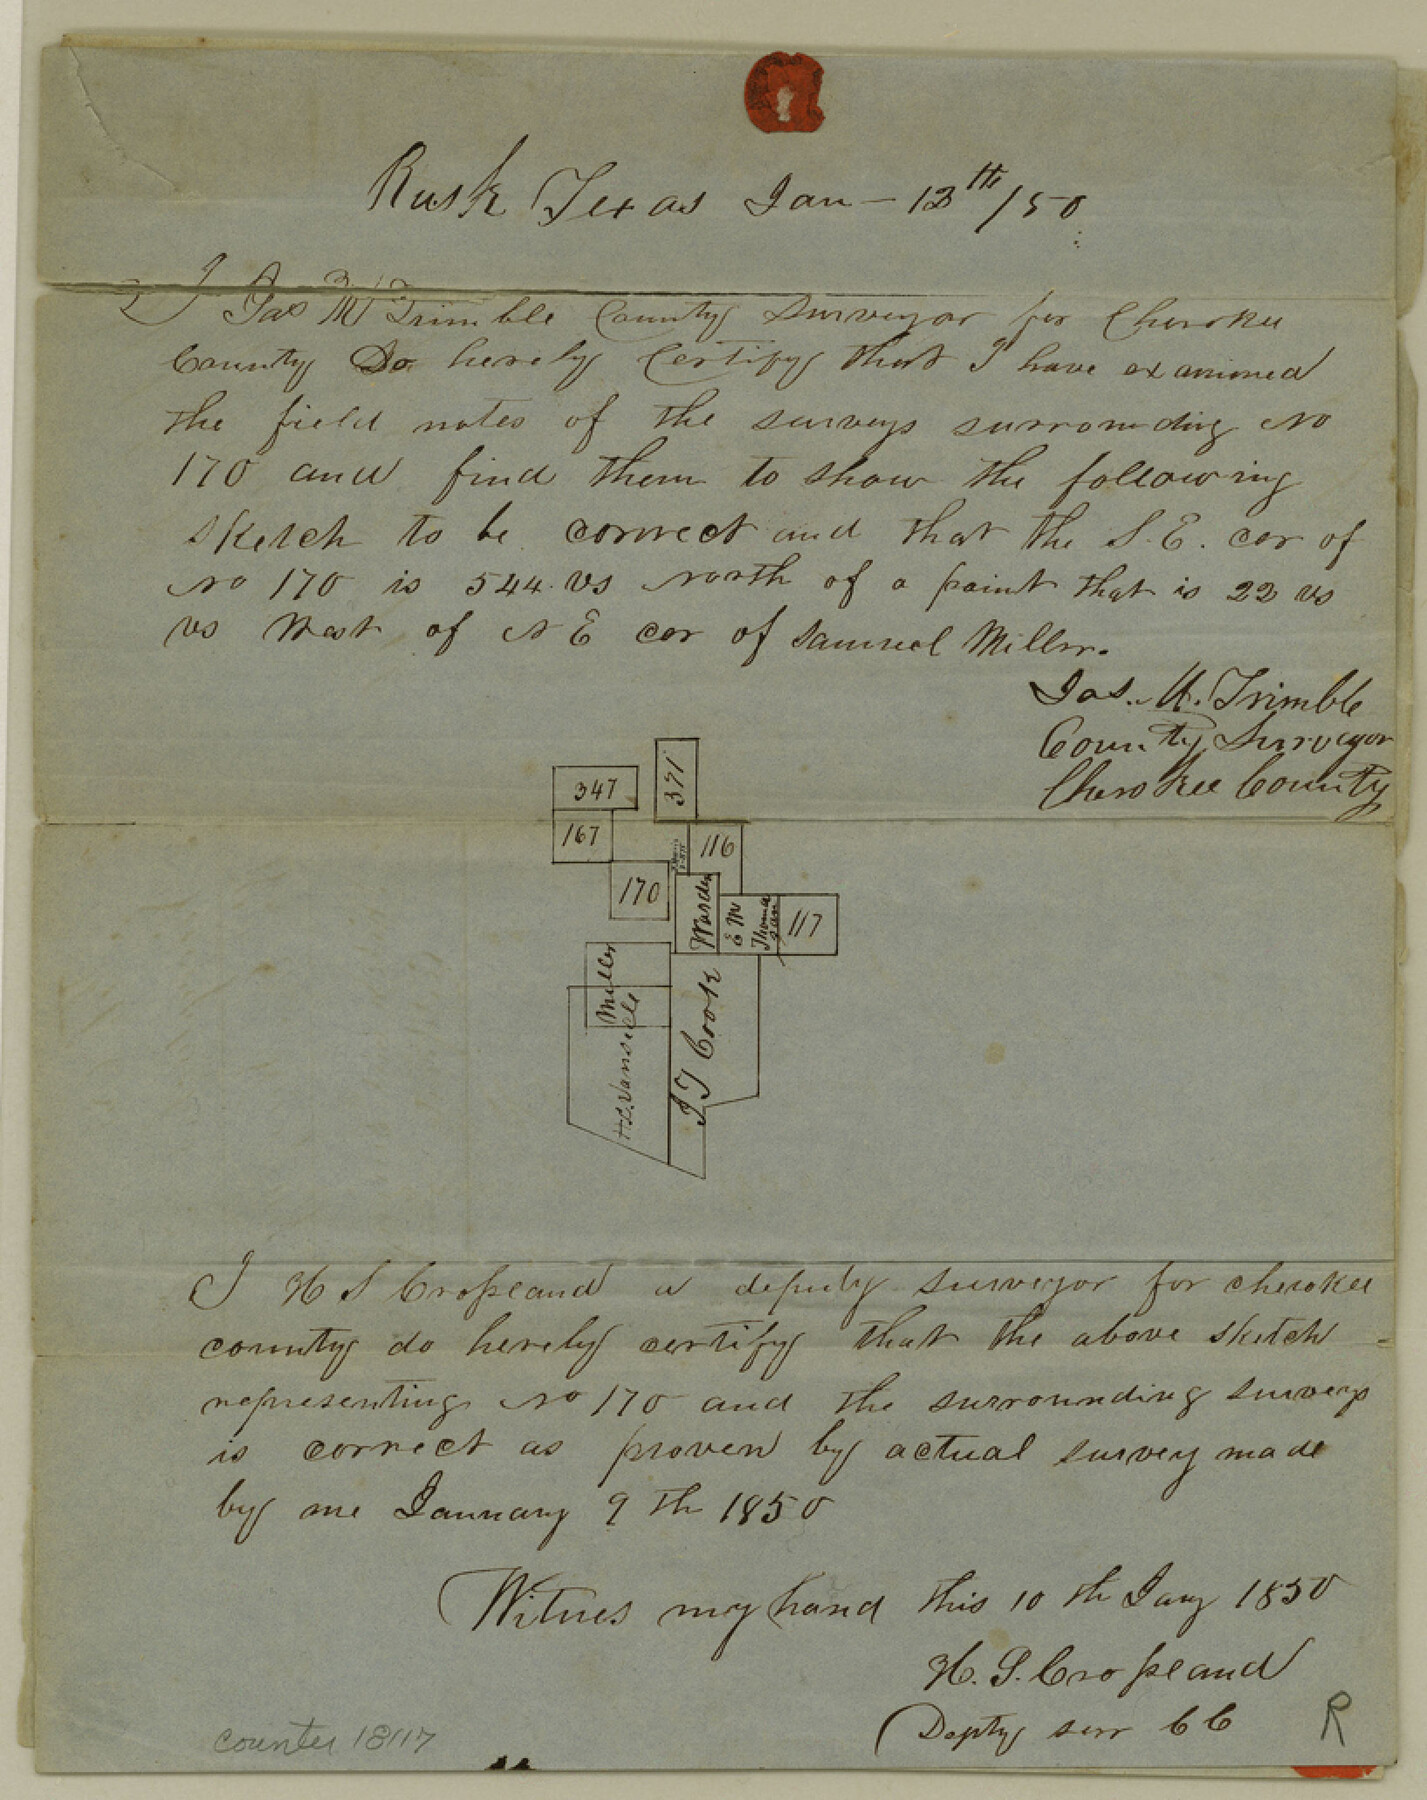 Rusk Texas Jan - 12th/50
I Jas M Trimble County Surveyor for Cherokee
County Do herely Certify that I have examined
the field notes of the surveys surrounding No
170 and find them to show the following
sketch to be correct and that the S. E. cor of
No 170 is 544 vs North of a point that is 22 vs
vs West of N E cor of Samuel Miller.
Jas. M. Trimble
County Surveyor
Cherokee County
371
347
167
116
170
Warden
E M
Thoma
son
117
Miller
J T Cook
I H S Cropland a deputy surveyor for cherokee
county do herely certify that the above sketch
representing No 170 and the surrounding surveys
is correct as proven by actual survey made
by me January 9 th 1850
Witness my hand this 10 th Jany 1850
H. S. Cropland
Depty surr C C
R
counter 18117